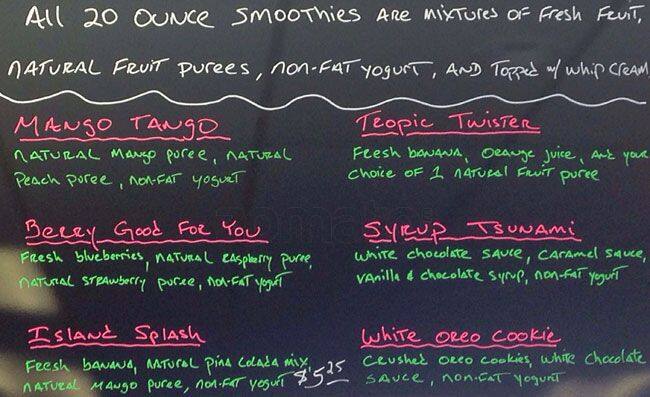 All 20 OUNCE SMOOTHIES ARE MIXTURES OF FRESH FRUIT,
NATURAL FRUIT PUREES, NON-FAT YOGURT, AND TOPPED w/ WHIP CREAM
MANGO TANGO
NATURAL MANGO PUREE, NATURAL
PEACH PUREE, NON-FAT YOGURT
BERRY GOOD FOR YOU
FRESH BLUEBERRIES, NATURAL RASPBERRY PUREE,
NATURAL STRAWBERRY PUREE, NON-FAT YOGURT
ISLAND SPLASH
FRESH BANANA, NATURAL PINA COLADA MIX,
NATURAL MANGO PUREE, NON-FAT YOGURT $5.25
TROPIC TWISTER
FRESH BANANA, ORANGE JUICE, AND YOUR
CHOICE OF 1 NATURAL FRUIT PUREE
SYRUP TSUNAMI
WHITE CHOCOLATE SAUCE, CARAMEL SAUCE,
VANILLA & CHOCOLATE SYRUP, NON-FAT YOGURT
WHITE OREO COOKIE
CRUSHED OREO COOKIES, WHITE CHOCOLATE
SAUCE, NON-FAT YOGURT